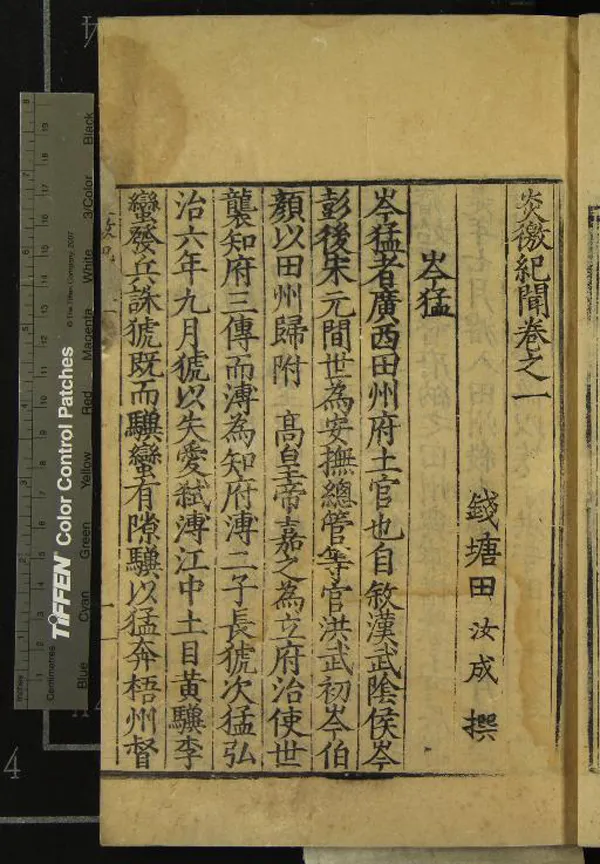 炎徼紀聞卷之一
錢塘田汝成撰
岑猛
岑猛者廣西田州府土官也自敘漢武陰侯岑
彭後宋元間世為安撫總管等官洪武初岑伯
顏以田州歸附 高皇帝嘉之為立府治使世
襲知府三傳而溥為知府溥二子長猇次猛弘
治六年九月猇以失愛弒溥江中土目黃驥李
蠻發兵誅猇既而驥蠻有隙驥以猛奔梧州督
TIFFEN Color Control Patches
© The Tiffen Company, 2007
Inches
Centimetres
Blue Cyan Green Yellow Red Magenta White 3/Color Black
4
4